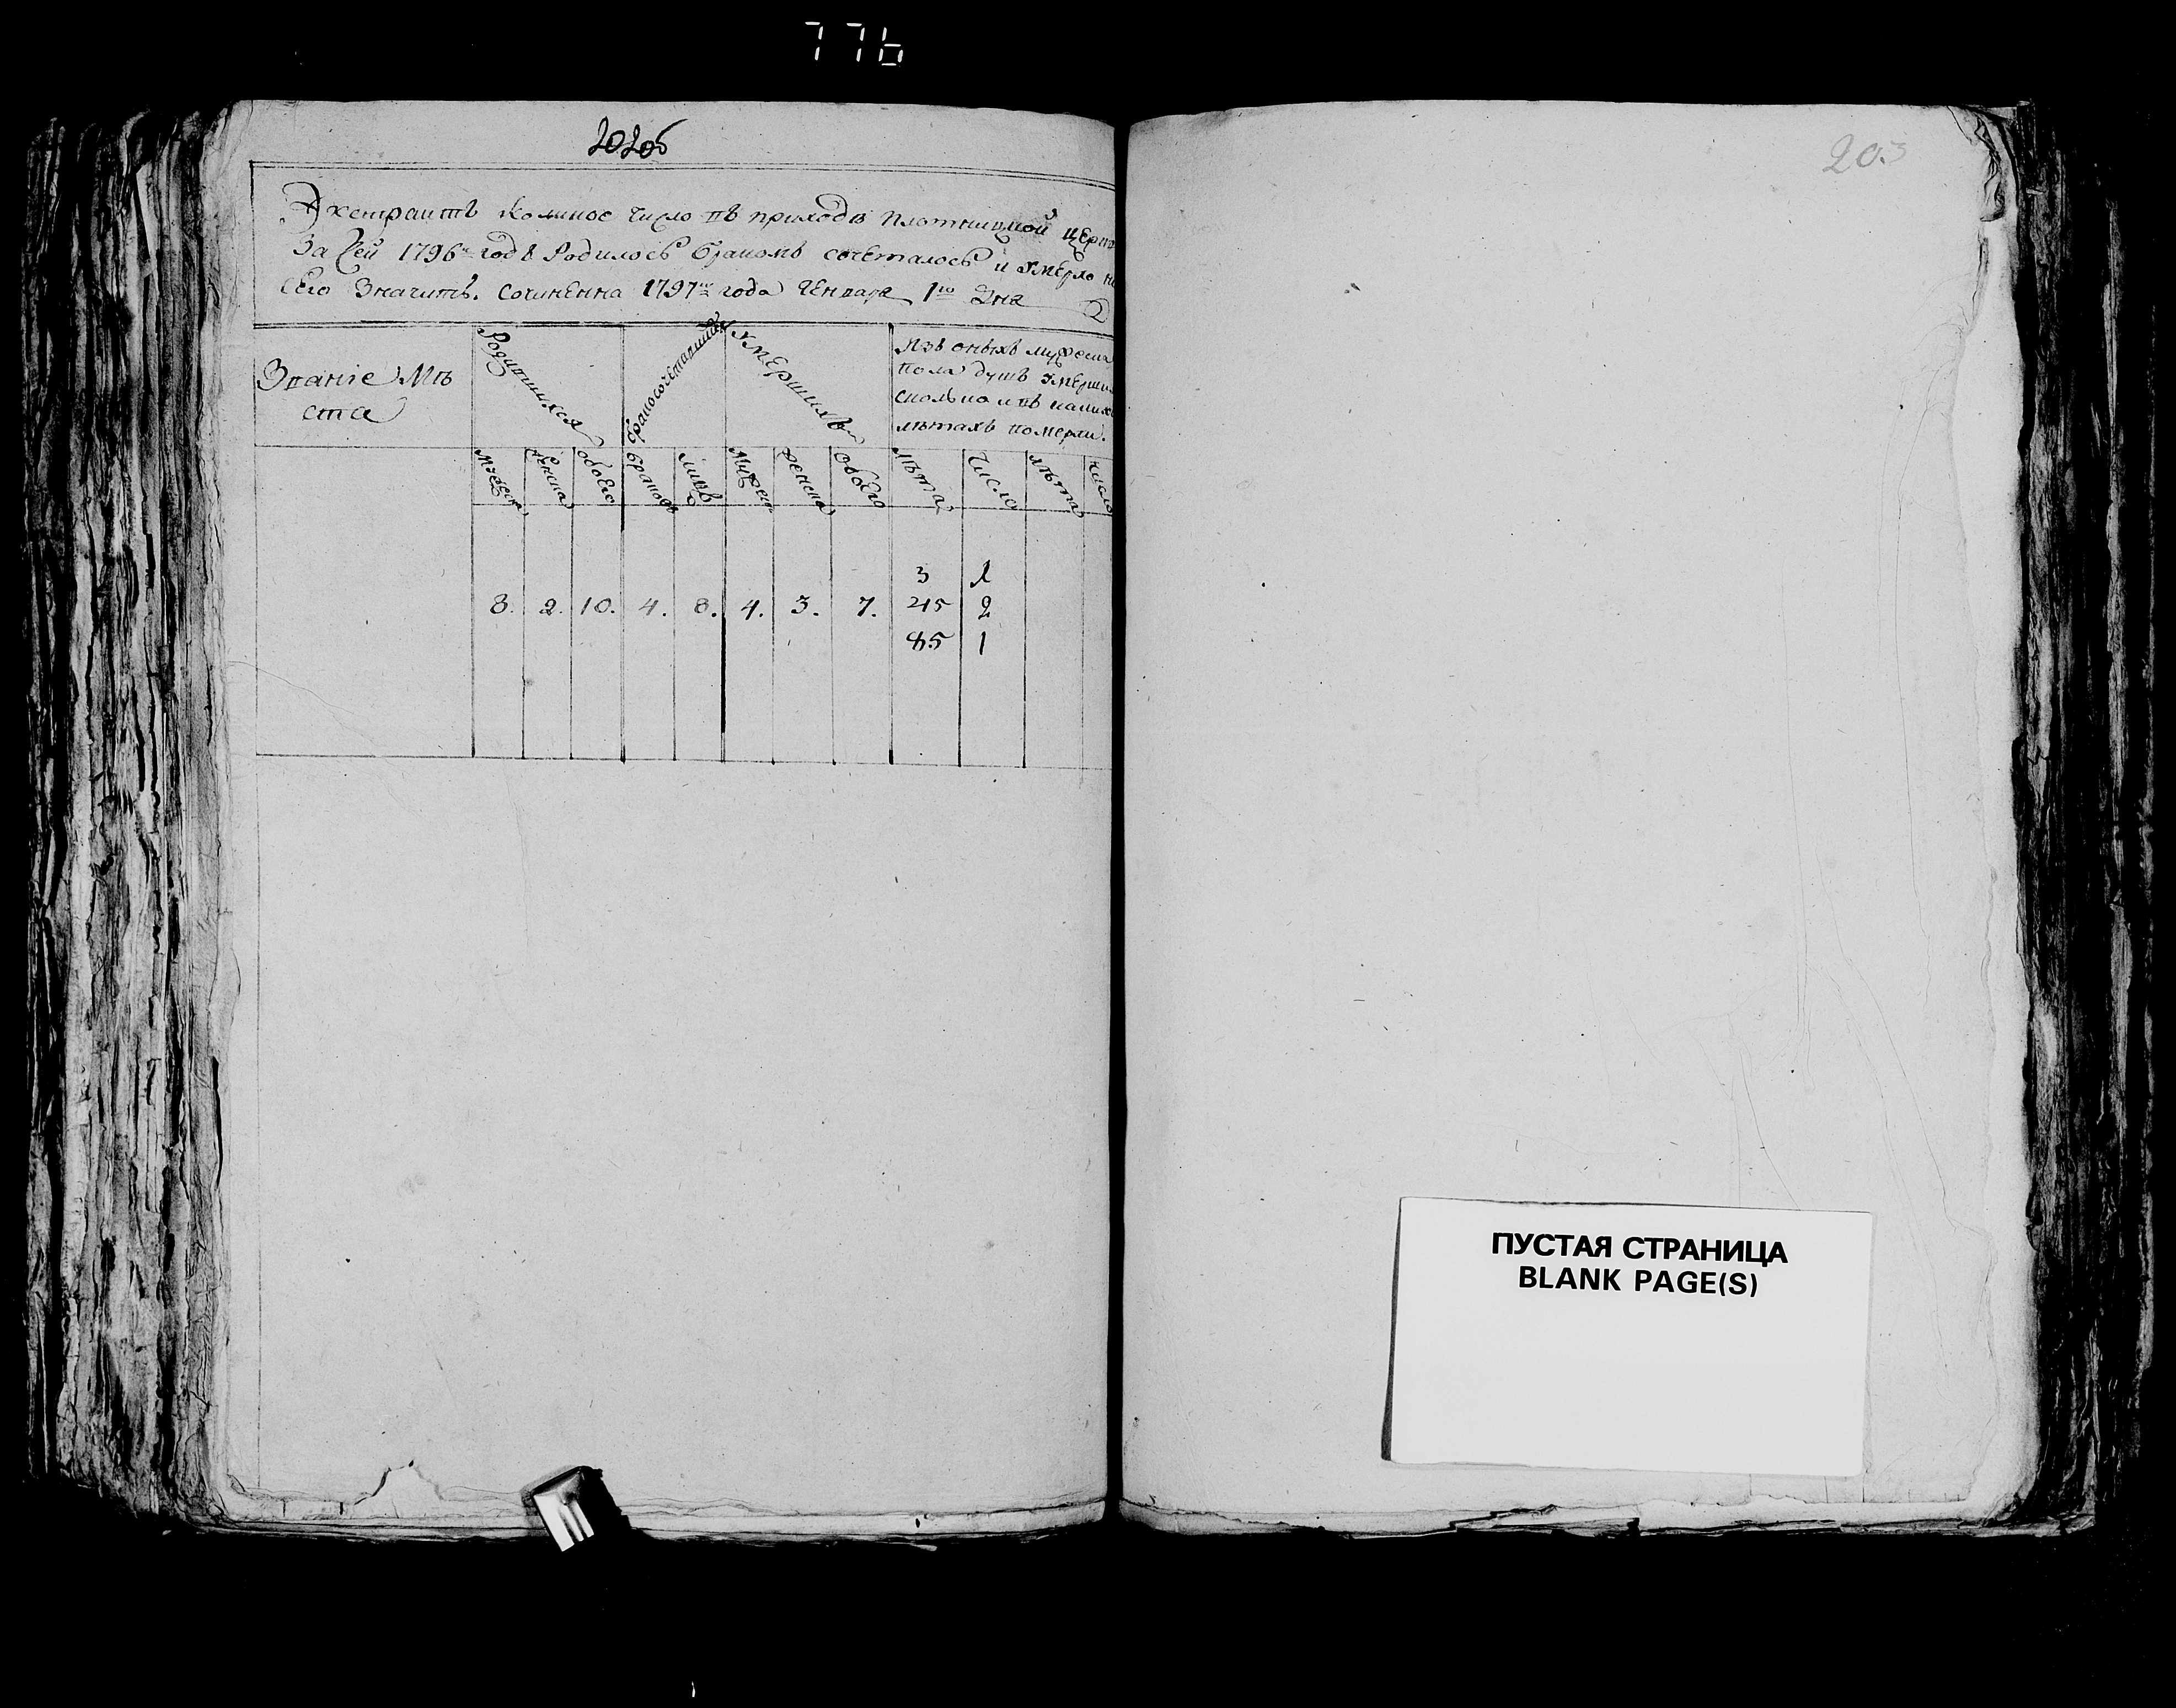 776
202об
Экстрактъ коликое число въ приходѣ Плотницкой церк
За сей 1796й годъ Родилось бракомъ сочеталось и умерло н
сего Значитъ. Сочиненна 1797го года Генваря 1го дня
Званіе Мѣ
ста
Родившихся
бракосочетавшихся
Умершихъ
Изъ оныхъ мужеска
пола душъ умерши
сколько и въ какихъ
лѣтахъ померли.
мужеска женска обоего браковъ лицъ мужеск женска обоего лѣта Число лѣта число
3 1
8. 2. 10. 4. 8. 4. 3. 7. 45 2
85 1
203
ПУСТАЯ СТРАНИЦА
BLANK PAGE(S)